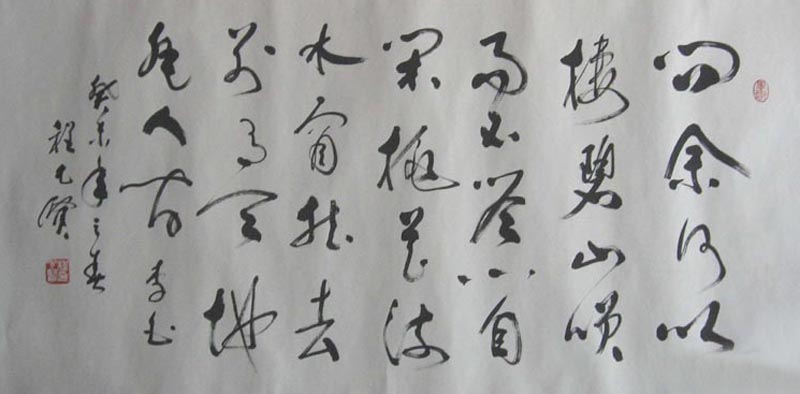 问余何以
棲碧山咲
而不答心自
闲桃花流
水窅然去
别有天地
非人间 李白
癸未年之春
程允贤